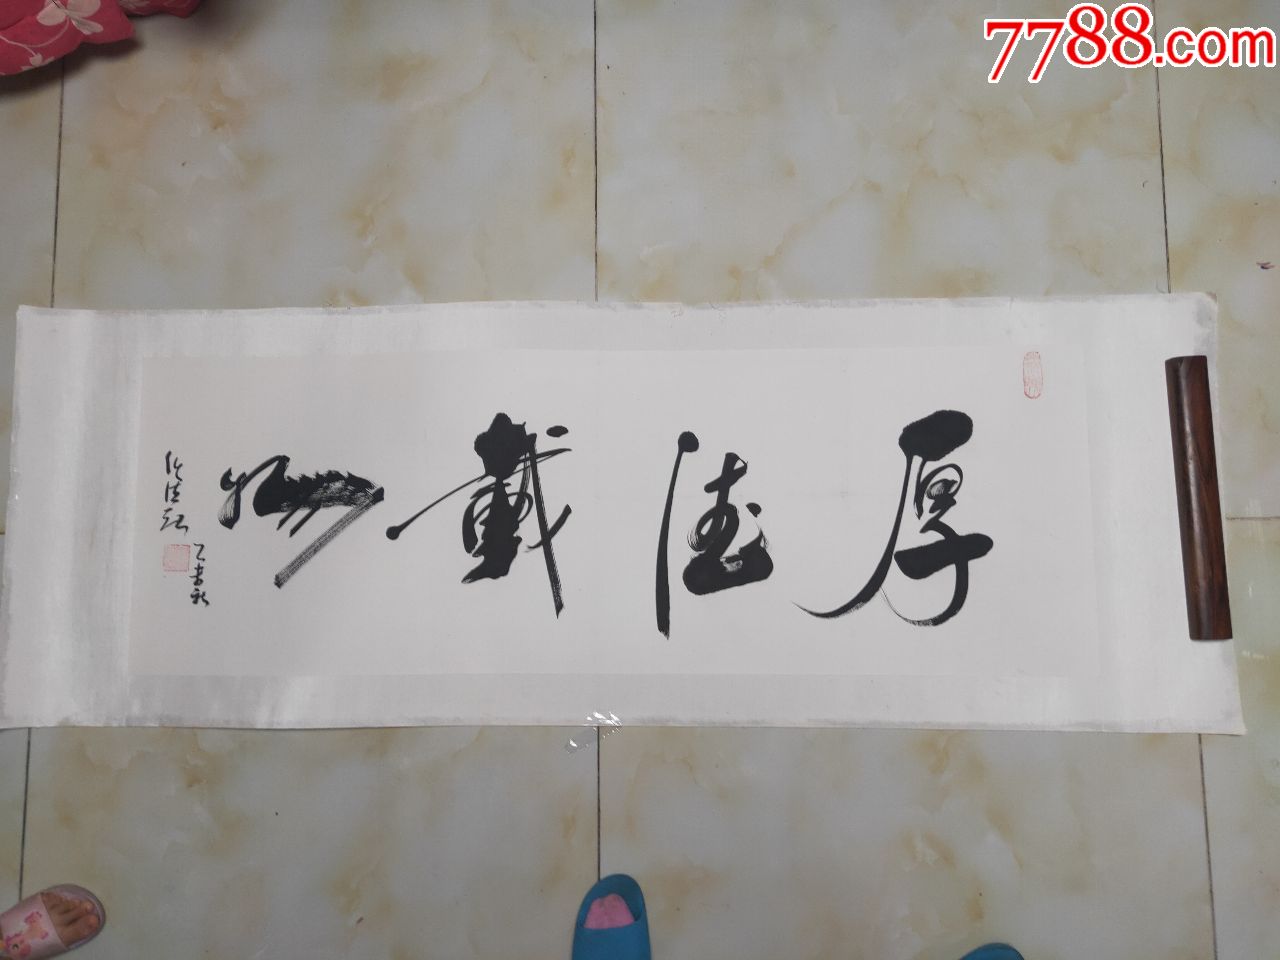 7788.com
厚德載物
乙未秋